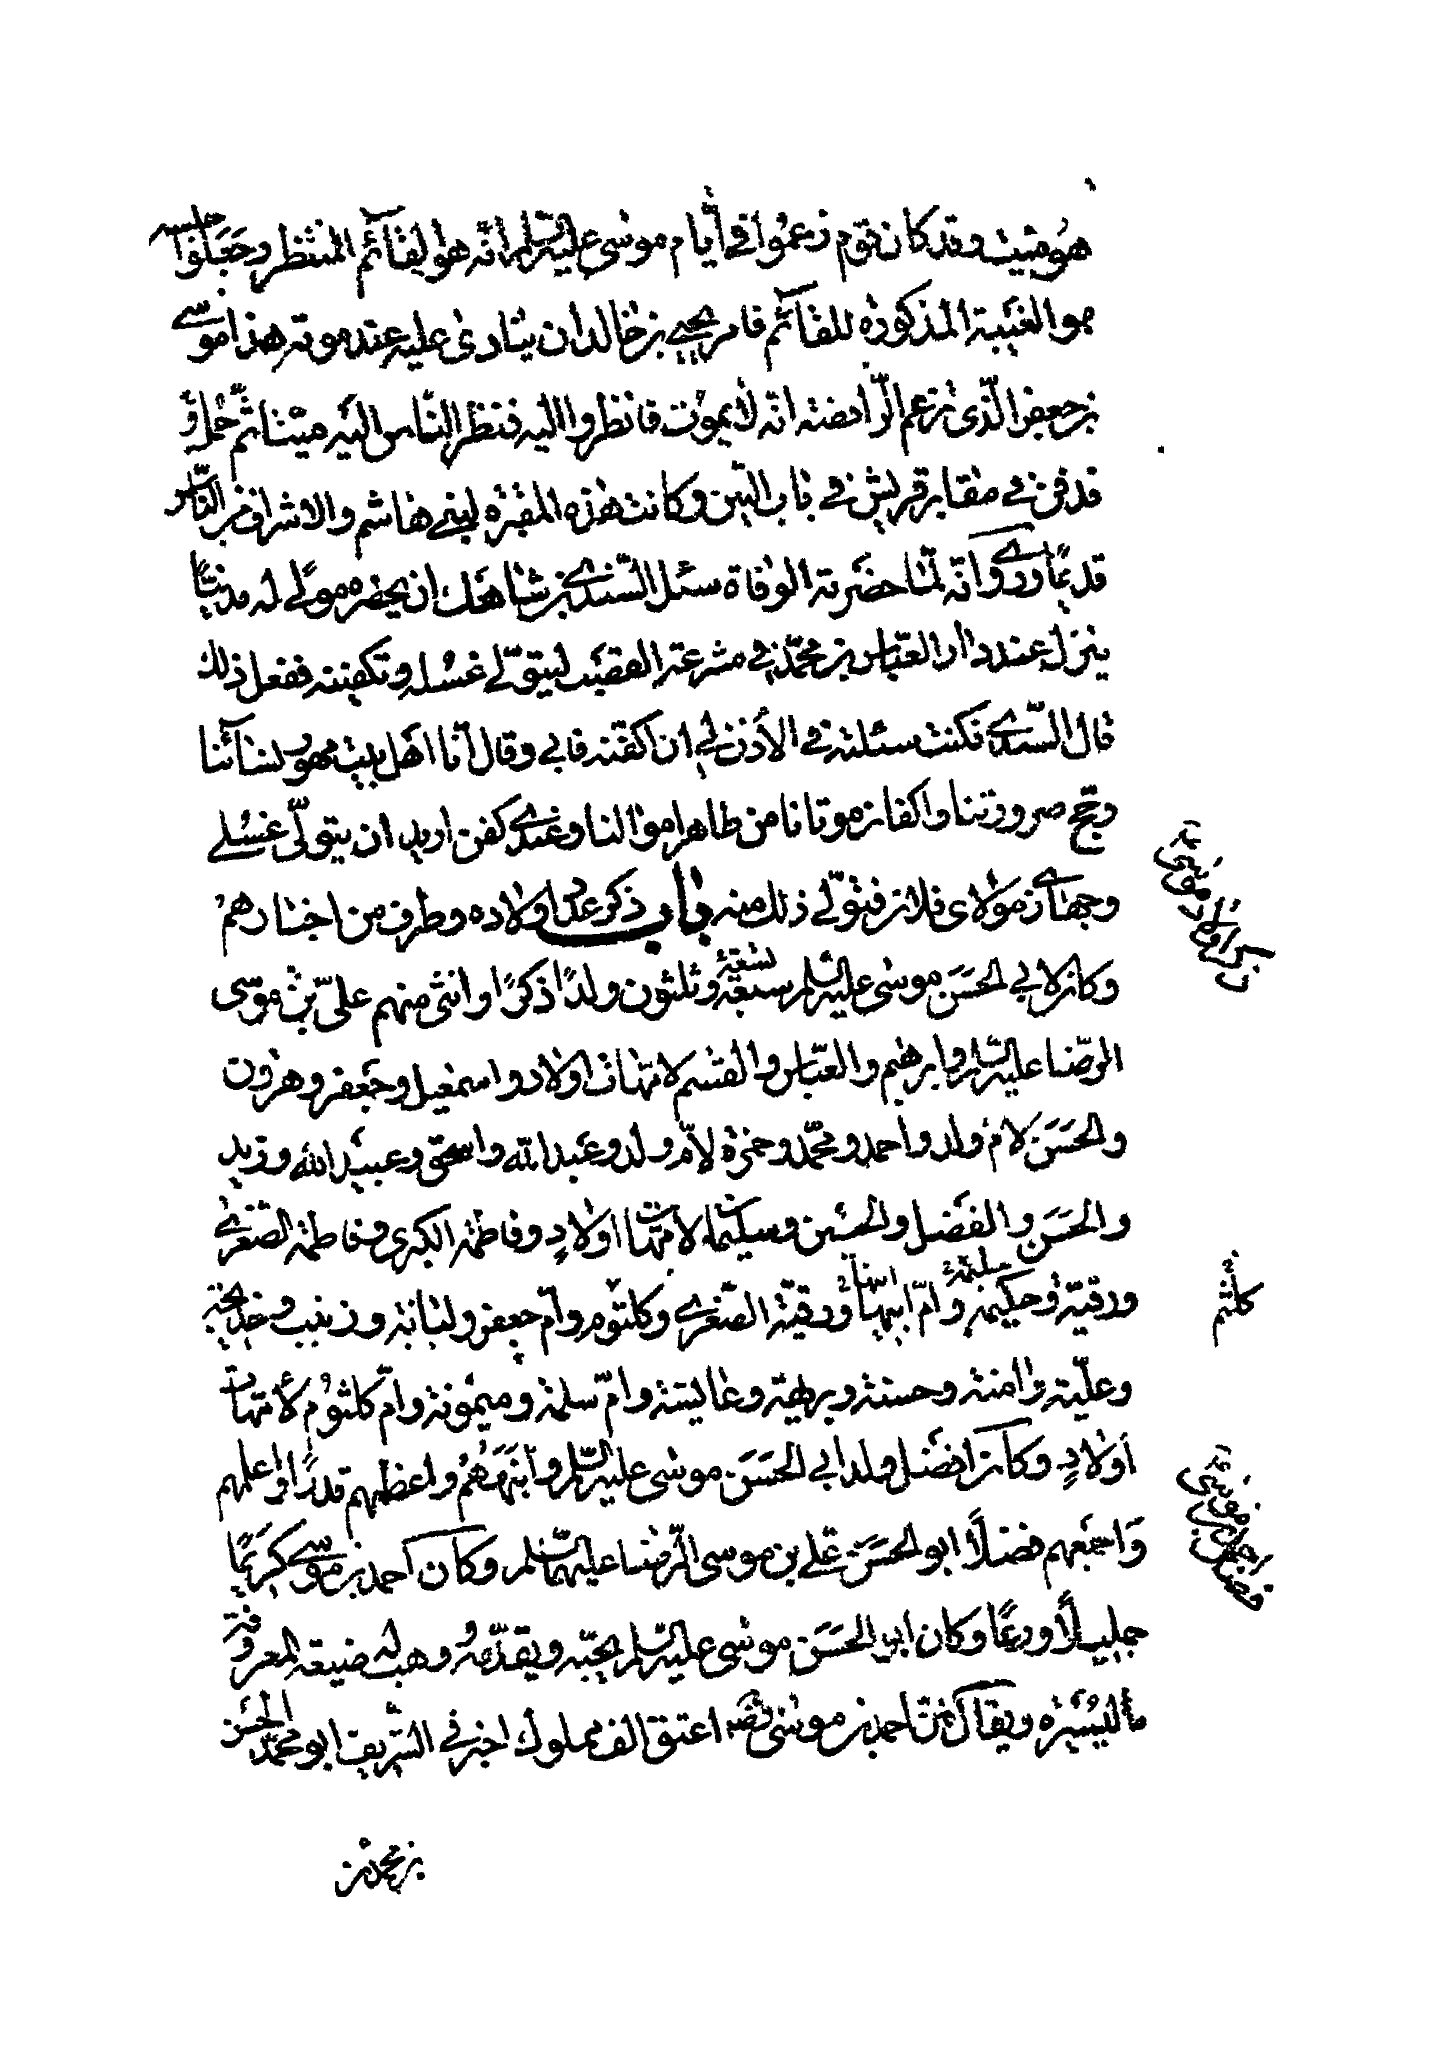 هو ميت وقد كان قوم زعموا في أيّام موسى عليه السلم انّه هو القائم المنتظر وجعلوا حبسه
هو الغيبة المذكورة للقائم فامر يحيى بن خالد ان ينادى عليه عند موته هذا موسى
بن جعفر الّذى تزعم الرّافضة انّه لا يموت فانظروا اليه فنظر النّاس اليه ميتا ثمّ حمل و
قد فن في مقابر قريش في باب التبن وكانت هذه المقبرة لبني هاشم والاشراف من النّاس
قديمًا وروى انّه لمّا حضرته الوفاة سئل السّندي بن شاهك ان يحضره مولى له مدنيًّا
ينزل عند دار العبّاس بن محمّد في مشرعة القصب ليتولّى غسله وتكفينه ففعل ذلك
قال السّندي فكنت سئلته في الأذن لي ان اكفنه فابى وقال أنا اهل بيت مهور نسائنا
وحجّ صرورتنا واكفان موتانا من طاهر اموالنا وعندي كفن اريد ان يتولّى غسلي
وجهازي مولاى فلان فتولّى ذلك منه باب ذكر عدد اولاده وطرف من اخبارهم
وكان لابي الحسن موسى عليه السلم سبعة وثلثون ولدًا ذكرًا وانثى منهم عليّ بن موسى
تسعة
الرّضا عليه السلم وابرهيم والعبّاس والقسم لامّهات اولاد واسمعيل وجعفر وهرون
والحسن لامّ ولد واحمد ومحمّد وحمزة لامّ ولد وعبد الله واسحق وعبيد الله وزيد
والحسن والفضل والحسين وسليمان لامّهات اولادٍ وفاطمة الكبرى وفاطمة الصّغرى
ورقيّة وحكيمة وامّ ابيها ورقيّة الصّغرى وكلثوم وامّ جعفر ولبابة وزينب وخديجة
سليمة ابنها
وعليّة وامنة وحسنة وبريهة وعايشة وامّ سلمة وميمونة وامّ كلثوم لامّهات
اولادٍ وكان افضل ولد ابي الحسن موسى عليه السلم وانبههم واعظمهم قدرًا واعلمهم
واجمعهم فضلاً ابو الحسن علي بن موسى الرّضا عليهما السلم وكان احمد بن موسى كريمًا
جليلاً ورعًا وكان ابو الحسن موسى عليه السلم يحبّه ويقدّمه ووهب له ضيعته المعروفة
باليسيره ويقال انّ احمد بن موسى رضه اعتق الف مملوك اخبرني الشّريف ابو محمّد الحسن
بن محمد بن
ذكر اولاد موسى ع
كلثم
فضل احمد بن موسى ع